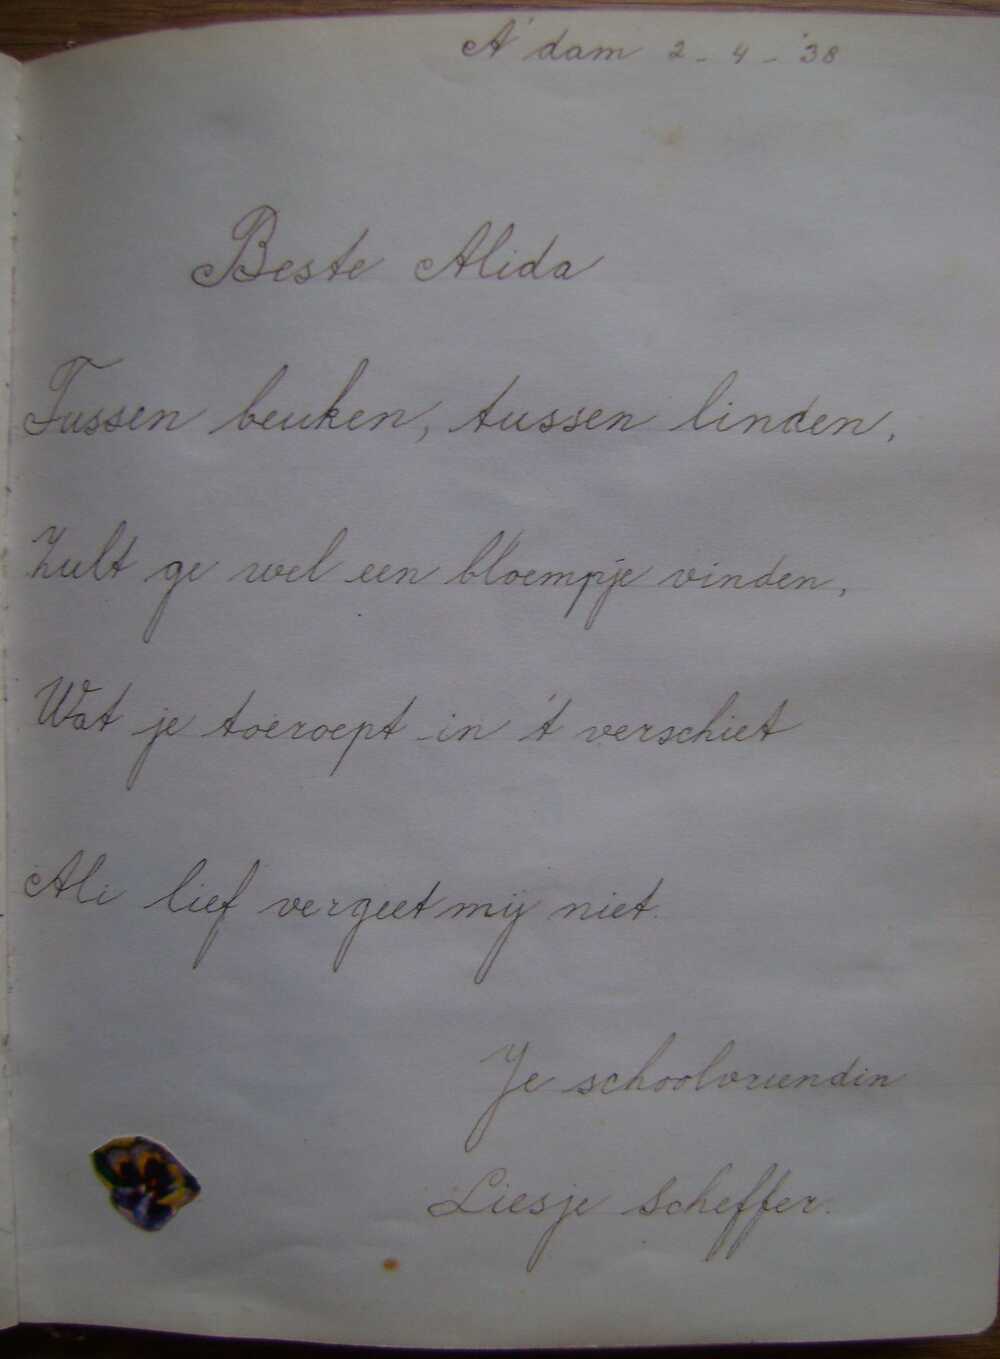 A'dam 2-4-'38
Beste Alida
Tussen beuken, tussen linden,
Zult ge wel een bloempje vinden,
Wat je toeroept in 't verschiet
Ali lief vergeet mij niet.
Je schoolvriendin
Liesje Scheffer.